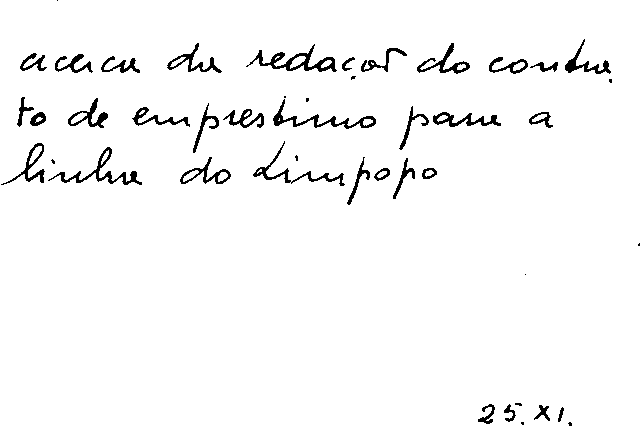 acerca da redação do contra-
to de emprestimo para a
linha do Limpopo
25.XI.